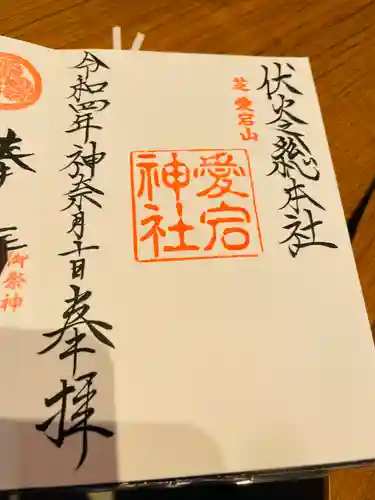 伏火之総本社
芝愛宕山
愛宕
神社
令和四年神無月十日
奉拝
御祭神